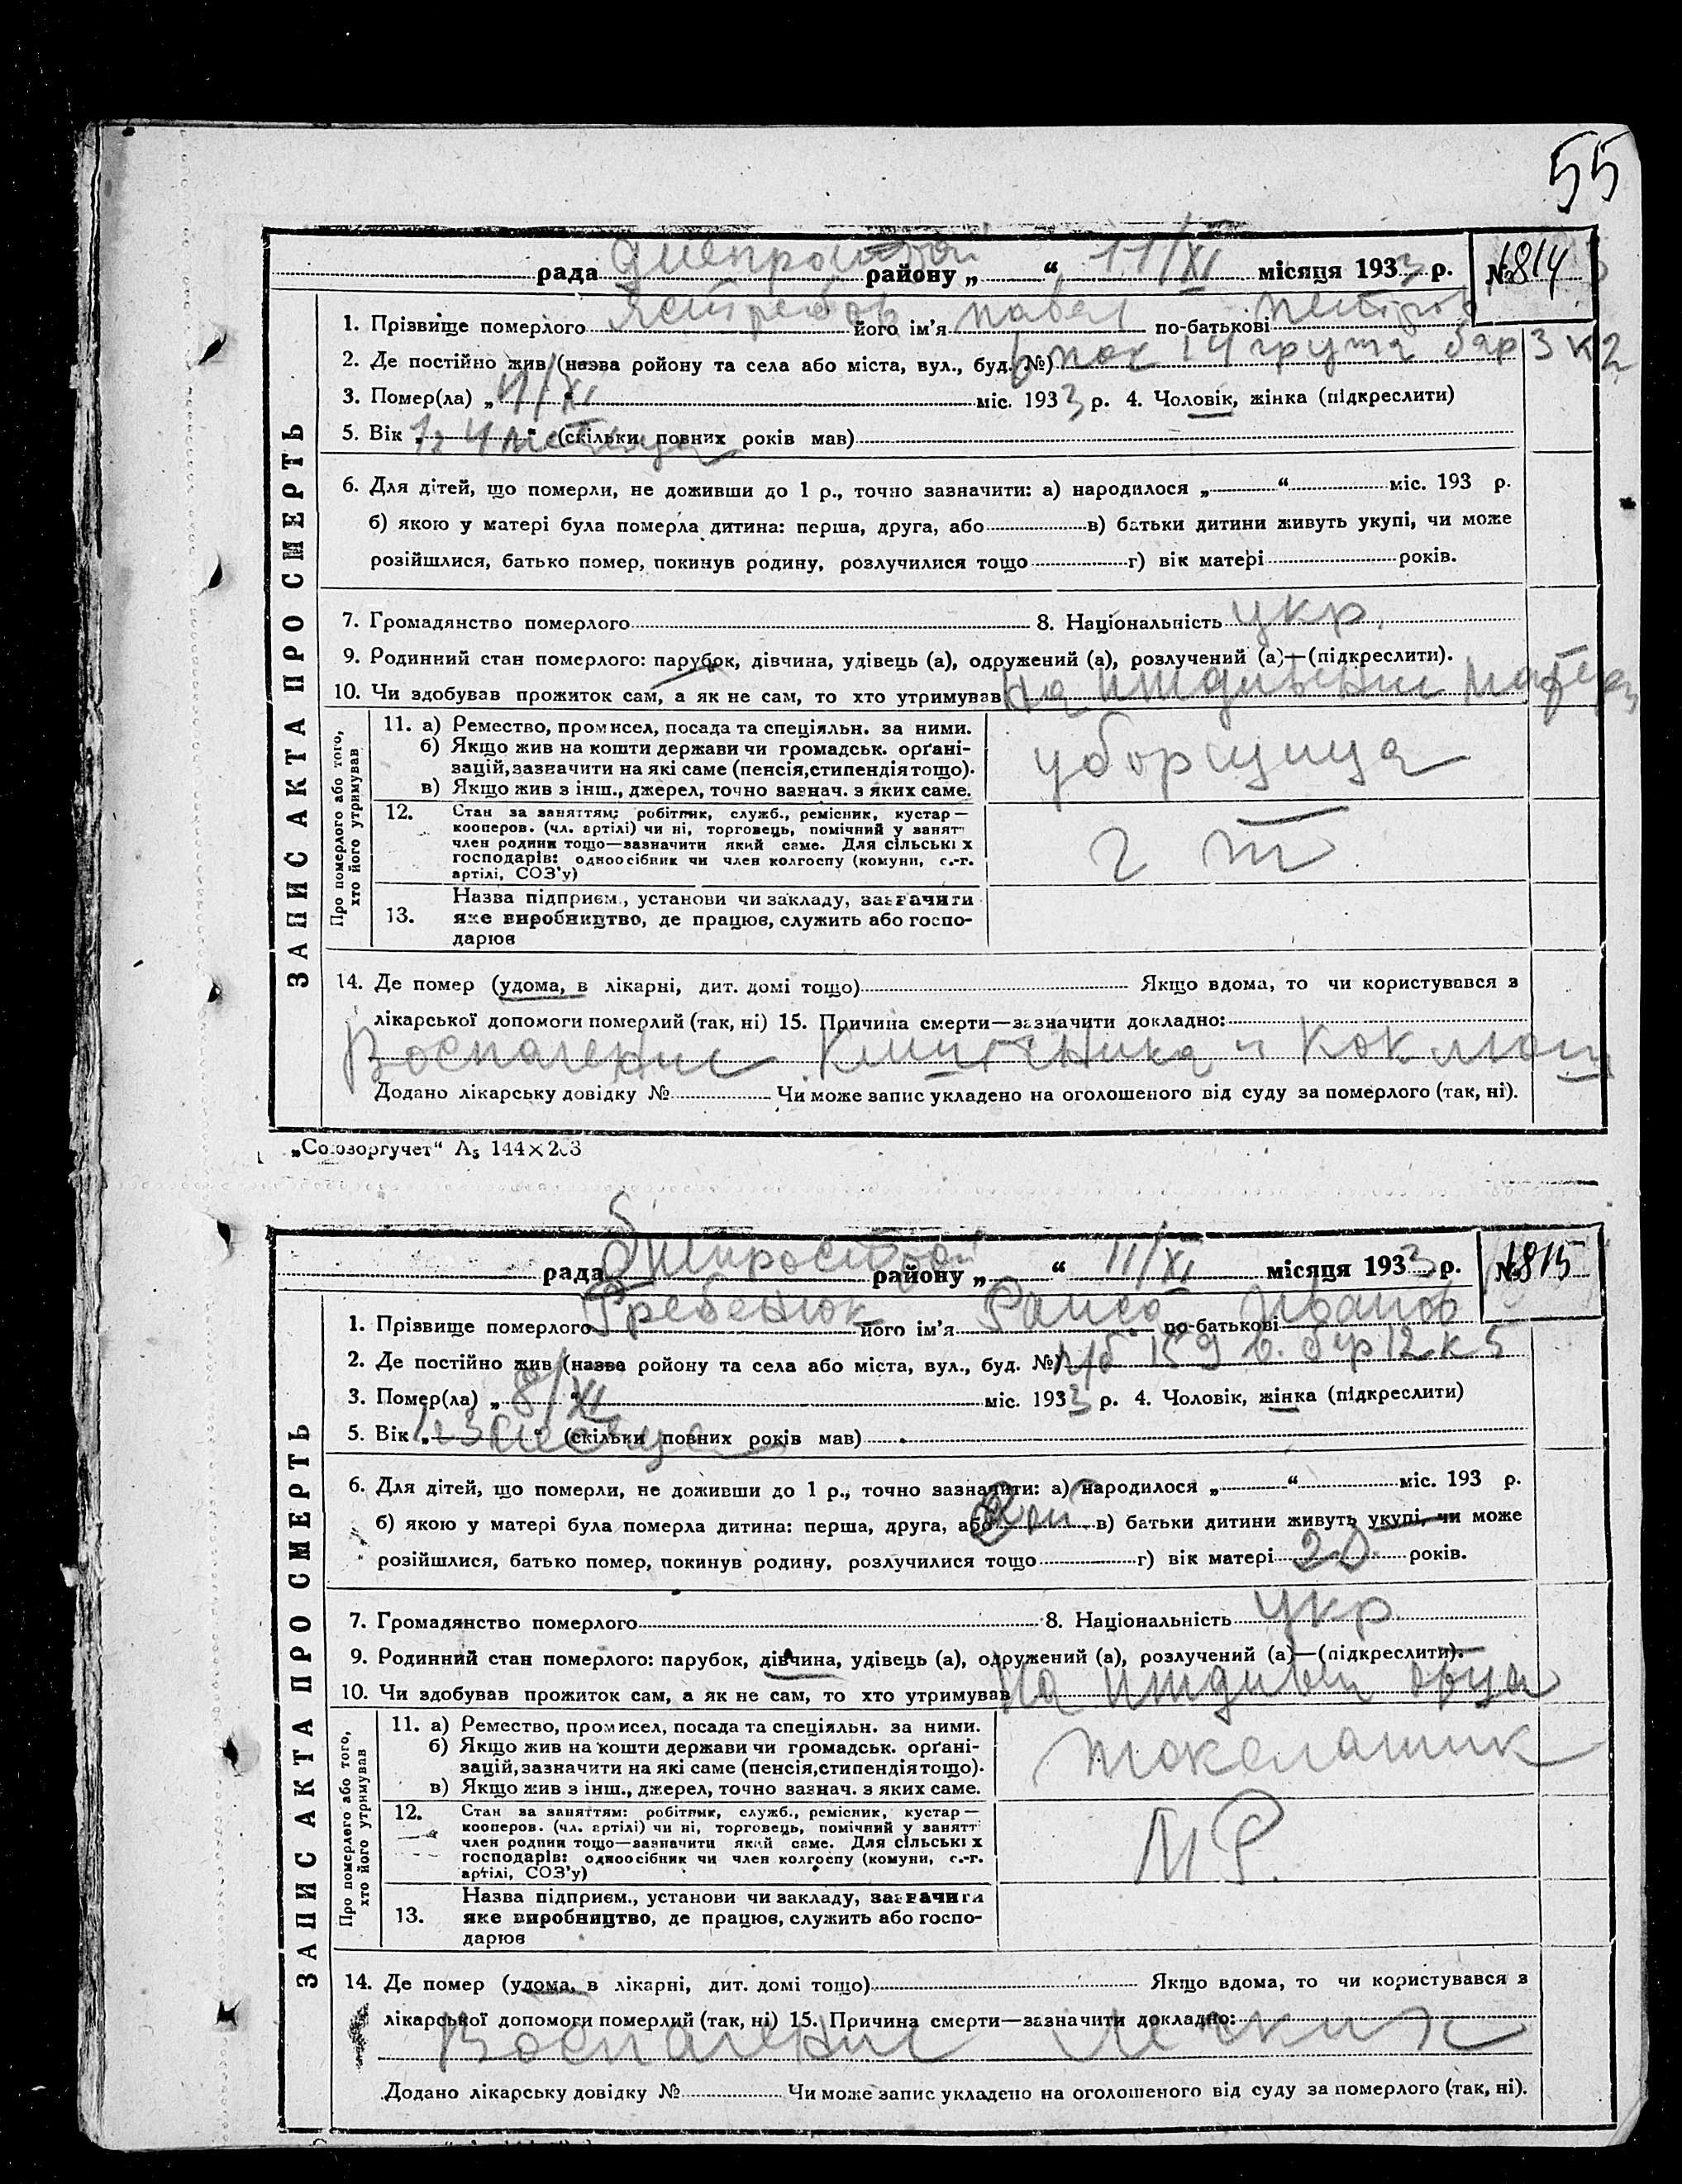 55
рада Днепрострой району „ “ 11/XI місяця 1933 р. № 1814
1. Прізвище померлого Ястребов його ім'я Павел по-батькові Петров
2. Де постійно жив (назва ройону та села або міста, вул., буд. №) 6 пос 14 группа бар 3 к 2
3. Помер(ла) „ 11/XI “ міс. 1933 р. 4. Чоловік, жінка (підкреслити)
5. Вік „ “ (скільки повних років мав)
6. Для дітей, що померли, не доживши до 1 р., точно зазначити: а) народилося „ “ міс. 193 р.
б) якою у матері була померла дитина: перша, друга, або в) батьки дитини живуть укупі, чи може
розійшлися, батько помер, покинув родину, розлучилися тощо г) вік матері років.
7. Громадянство померлого 8. Національність укр.
9. Родинний стан померлого: парубок, дівчина, удівець (а), одружений (а), розлучений (а)—(підкреслити).
10. Чи здобував прожиток сам, а як не сам, то хто утримував на иждивении матери
11. а) Ремество, промисел, посада та спеціяльн. за ними.
б) Якщо жив на кошти держави чи громадськ. орґані-
зацій, зазначити на які саме (пенсія, стипендія тощо).
в) Якщо жив з інш., джерел, точно зазнач. з яких саме.
уборщица
12. Стан за заняттям: робітник, служб., ремісник, кустар—
кооперов. (чл. артілі) чи ні, торговець, помічний у занятт
член родини тощо—зазначити який саме. Для сільських
господарів: одноосібник чи член колгоспу (комуни, с.-г.
артілі, СОЗ'у)
13. Назва підприєм., установи чи закладу, зазначити
яке виробництво, де працює, служить або госпо-
дарює
Про померлого або того,
хто його утримував
ЗАПИС АКТА ПРО СМЕРТЬ
14. Де помер (удома, в лікарні, дит. домі тощо) Якщо вдома, то чи користувався з
лікарської допомоги померлий (так, ні) 15. Причина смерти—зазначити докладно:
Воспаление кишечника и коклюш
Додано лікарську довідку № Чи може запис укладено на оголошеного від суду за померлого (так, ні).
„Союзоргучет“ А5 144×203
рада Днепрострой району „ “ 11/XI місяця 1933 р. № 1815
1. Прізвище померлого Гребенюк його ім'я Раиса по-батькові Иванов
2. Де постійно жив (назва ройону та села або міста, вул., буд. №)
3. Помер(ла) „ 8/XI “ міс. 1933 р. 4. Чоловік, жінка (підкреслити)
5. Вік „ “ (скільки повних років мав)
6. Для дітей, що померли, не доживши до 1 р., точно зазначити: а) народилося „ “ міс. 193 р.
б) якою у матері була померла дитина: перша, друга, або в) батьки дитини живуть укупі, чи може
розійшлися, батько помер, покинув родину, розлучилися тощо г) вік матері 20 років.
7. Громадянство померлого 8. Національність укр
9. Родинний стан померлого: парубок, дівчина, удівець (а), одружений (а), розлучений (а)—(підкреслити).
10. Чи здобував прожиток сам, а як не сам, то хто утримував на иждивен отца
11. а) Ремество, промисел, посада та спеціяльн. за ними.
б) Якщо жив на кошти держави чи громадськ. орґані-
зацій, зазначити на які саме (пенсія, стипендія тощо).
в) Якщо жив з інш., джерел, точно зазнач. з яких саме.
12. Стан за заняттям: робітник, служб., ремісник, кустар—
кооперов. (чл. артілі) чи ні, торговець, помічний у занятт
член родини тощо—зазначити який саме. Для сільських
господарів: одноосібник чи член колгоспу (комуни, с.-г.
артілі, СОЗ'у)
МР
13. Назва підприєм., установи чи закладу, зазначити
яке виробництво, де працює, служить або госпо-
дарює
Про померлого або того,
хто його утримував
ЗАПИС АКТА ПРО СМЕРТЬ
14. Де помер (удома, в лікарні, дит. домі тощо) Якщо вдома, то чи користувався з
лікарської допомоги померлий (так, ні) 15. Причина смерти—зазначити докладно:
Воспаление легких
Додано лікарську довідку № Чи може запис укладено на оголошеного від суду за померлого (так, ні).